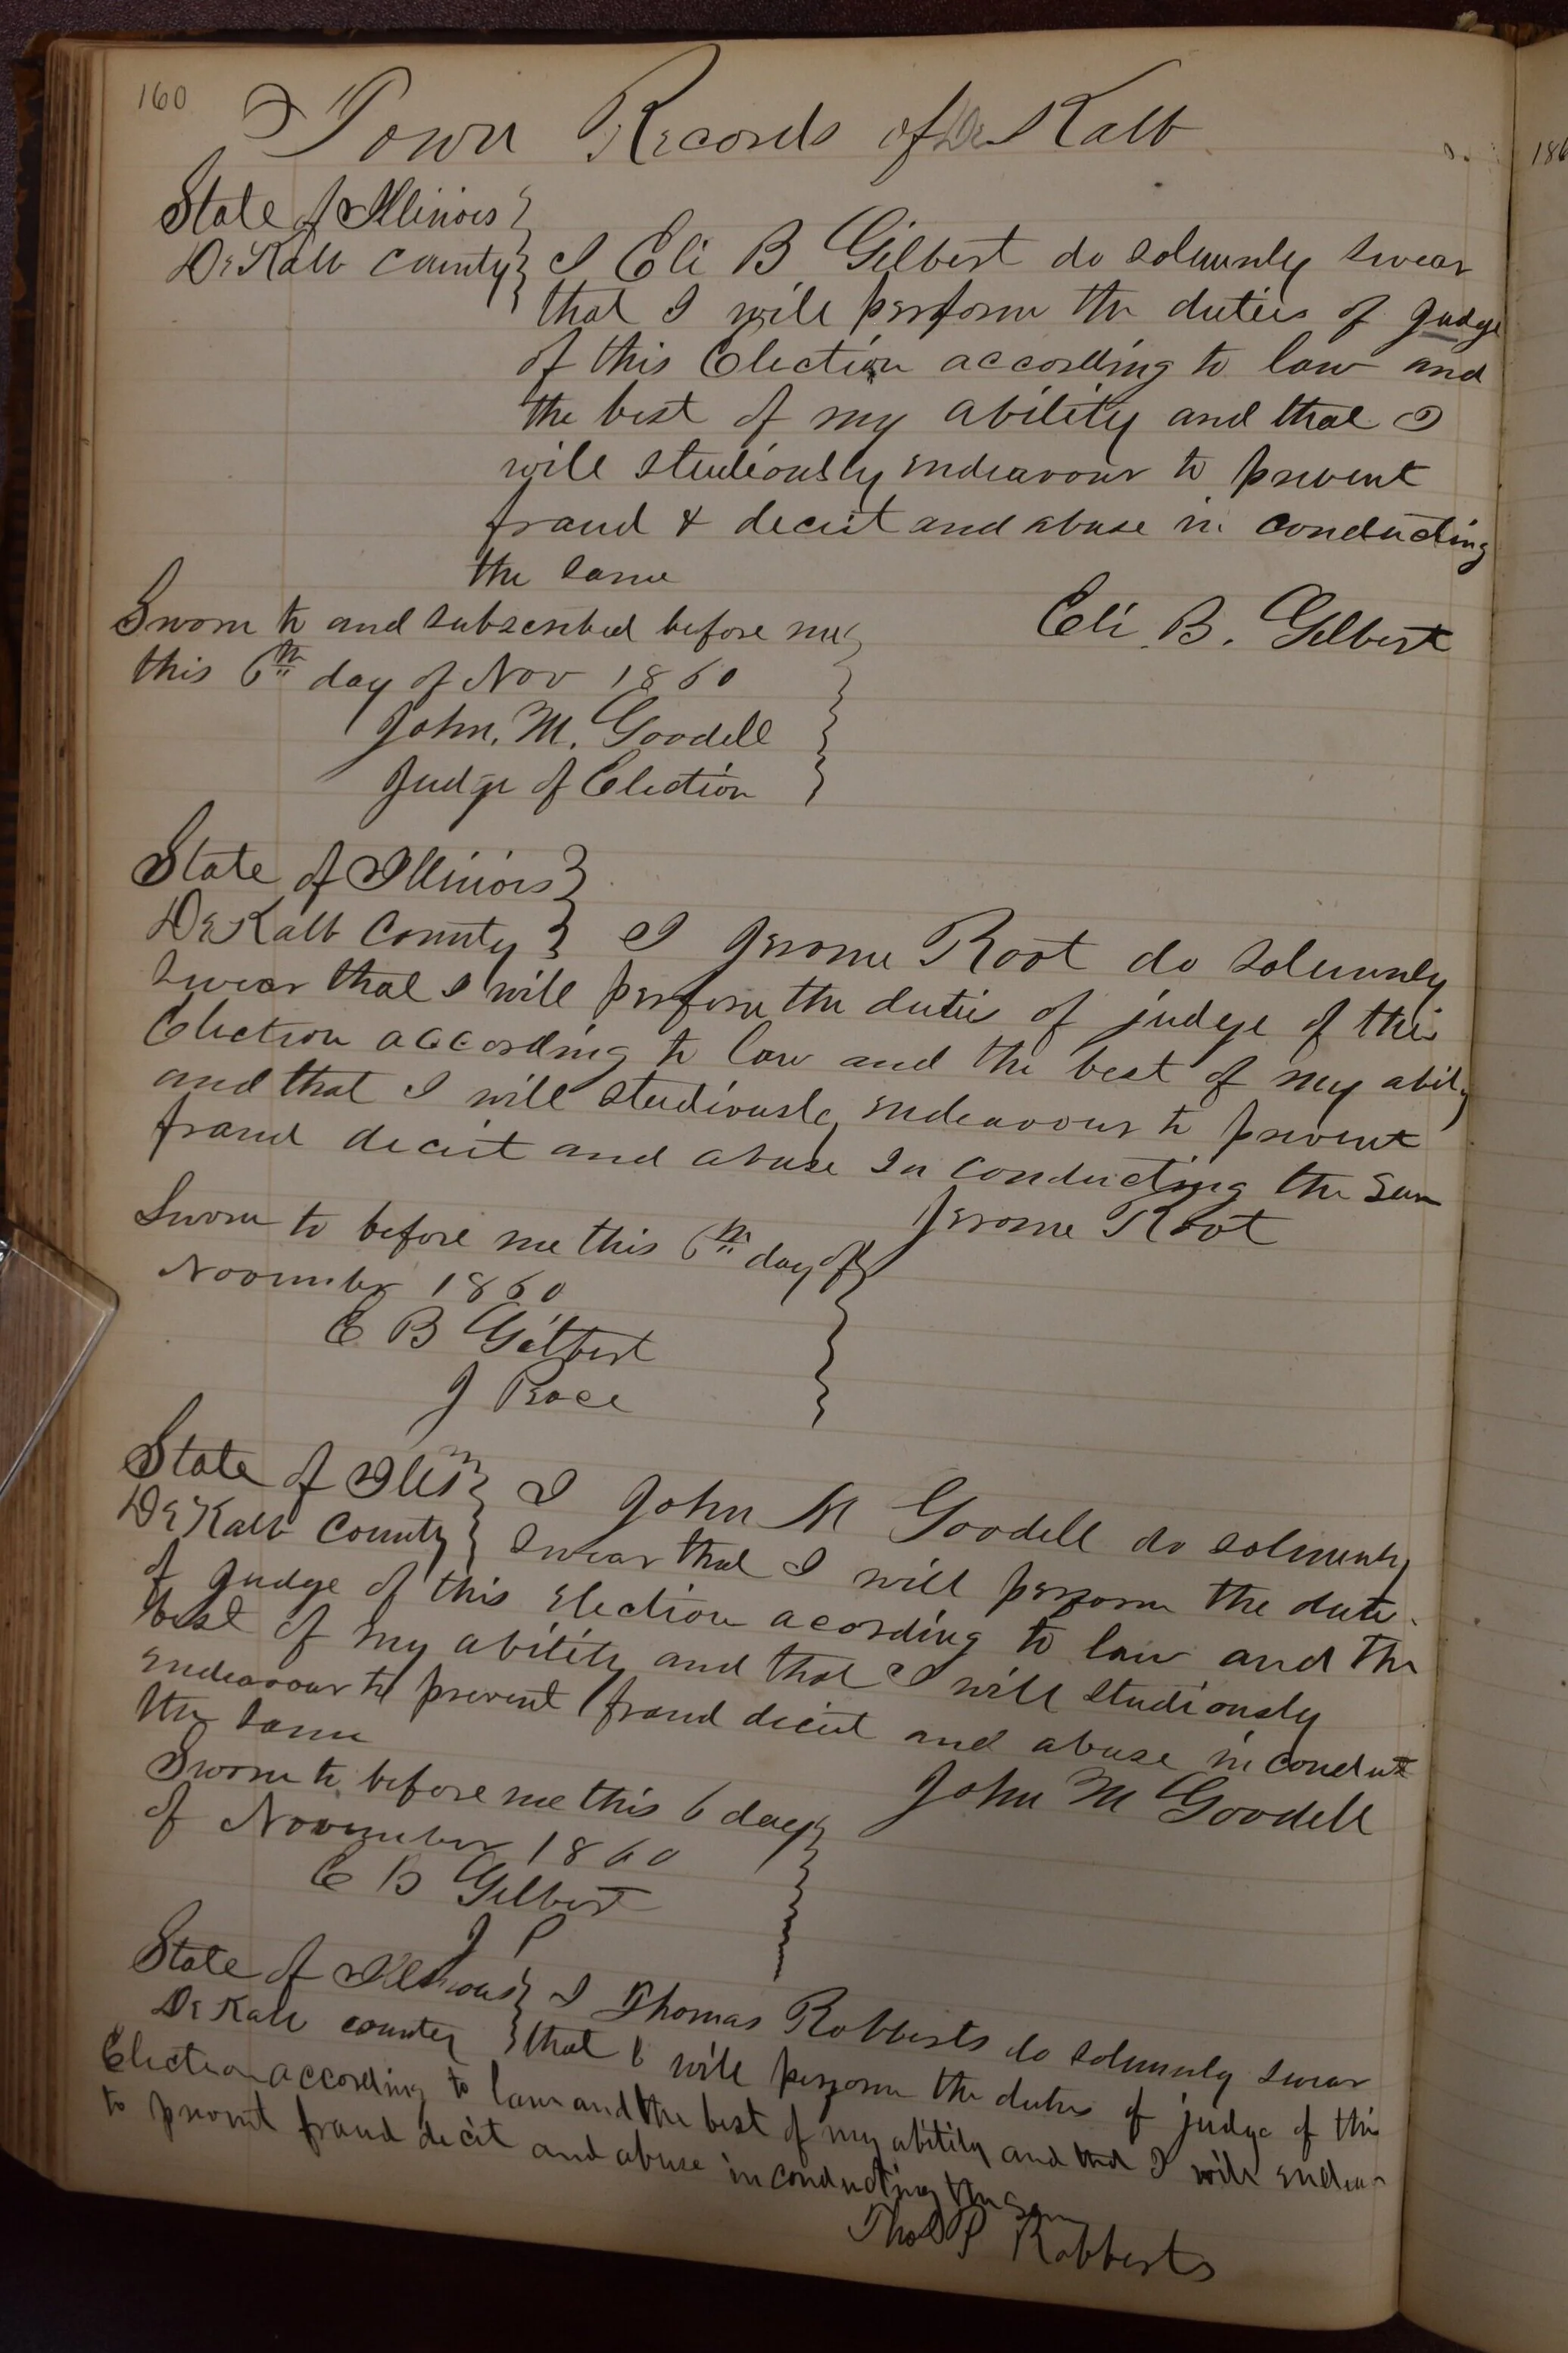 160
Town Records of De Kalb
State of Illinois
De Kalb County I Eli B Gilbert do solemnly swear
that I will perform the duties of judge
of this Election according to law and
the best of my ability and that I
will studiously endeavour to prevent
fraud & deceit and abuse in conducting
the same
Sworn to and subscribed before me
this 6th day of Nov 1860
John. M. Goodell
Judge of Election
Eli. B. Gilbert
State of Illinois
De Kalb County I Jerome Root do solemnly
swear that I will perform the duties of judge of this
Election according to law and the best of my ability
and that I will studiously endeavour to prevent
fraud deceit and abuse In conducting the same
Jerome Root
Sworn to before me this 6th day of
November 1860
E B Gilbert
J Peace
State of Ills
De Kalb County I John M Goodell do solemnly
swear that I will perform the dutie
of judge of this Election acording to law and the
best of my ability and that I will studiously
endeavour to prevent fraud deceit and abuse in conduct
the same
John M Goodell
Sworn to before me this 6 day
of November 1860
E B Gilbert
J P
State of Illinois
De Kalb county I Thomas Robberts do solemnly swear
that I will perform the duties of judge of this
Election according to law and the best of my ability and that I will endeavor
to prevent fraud decit and abuse in conducting the same
Thos P Robberts
186